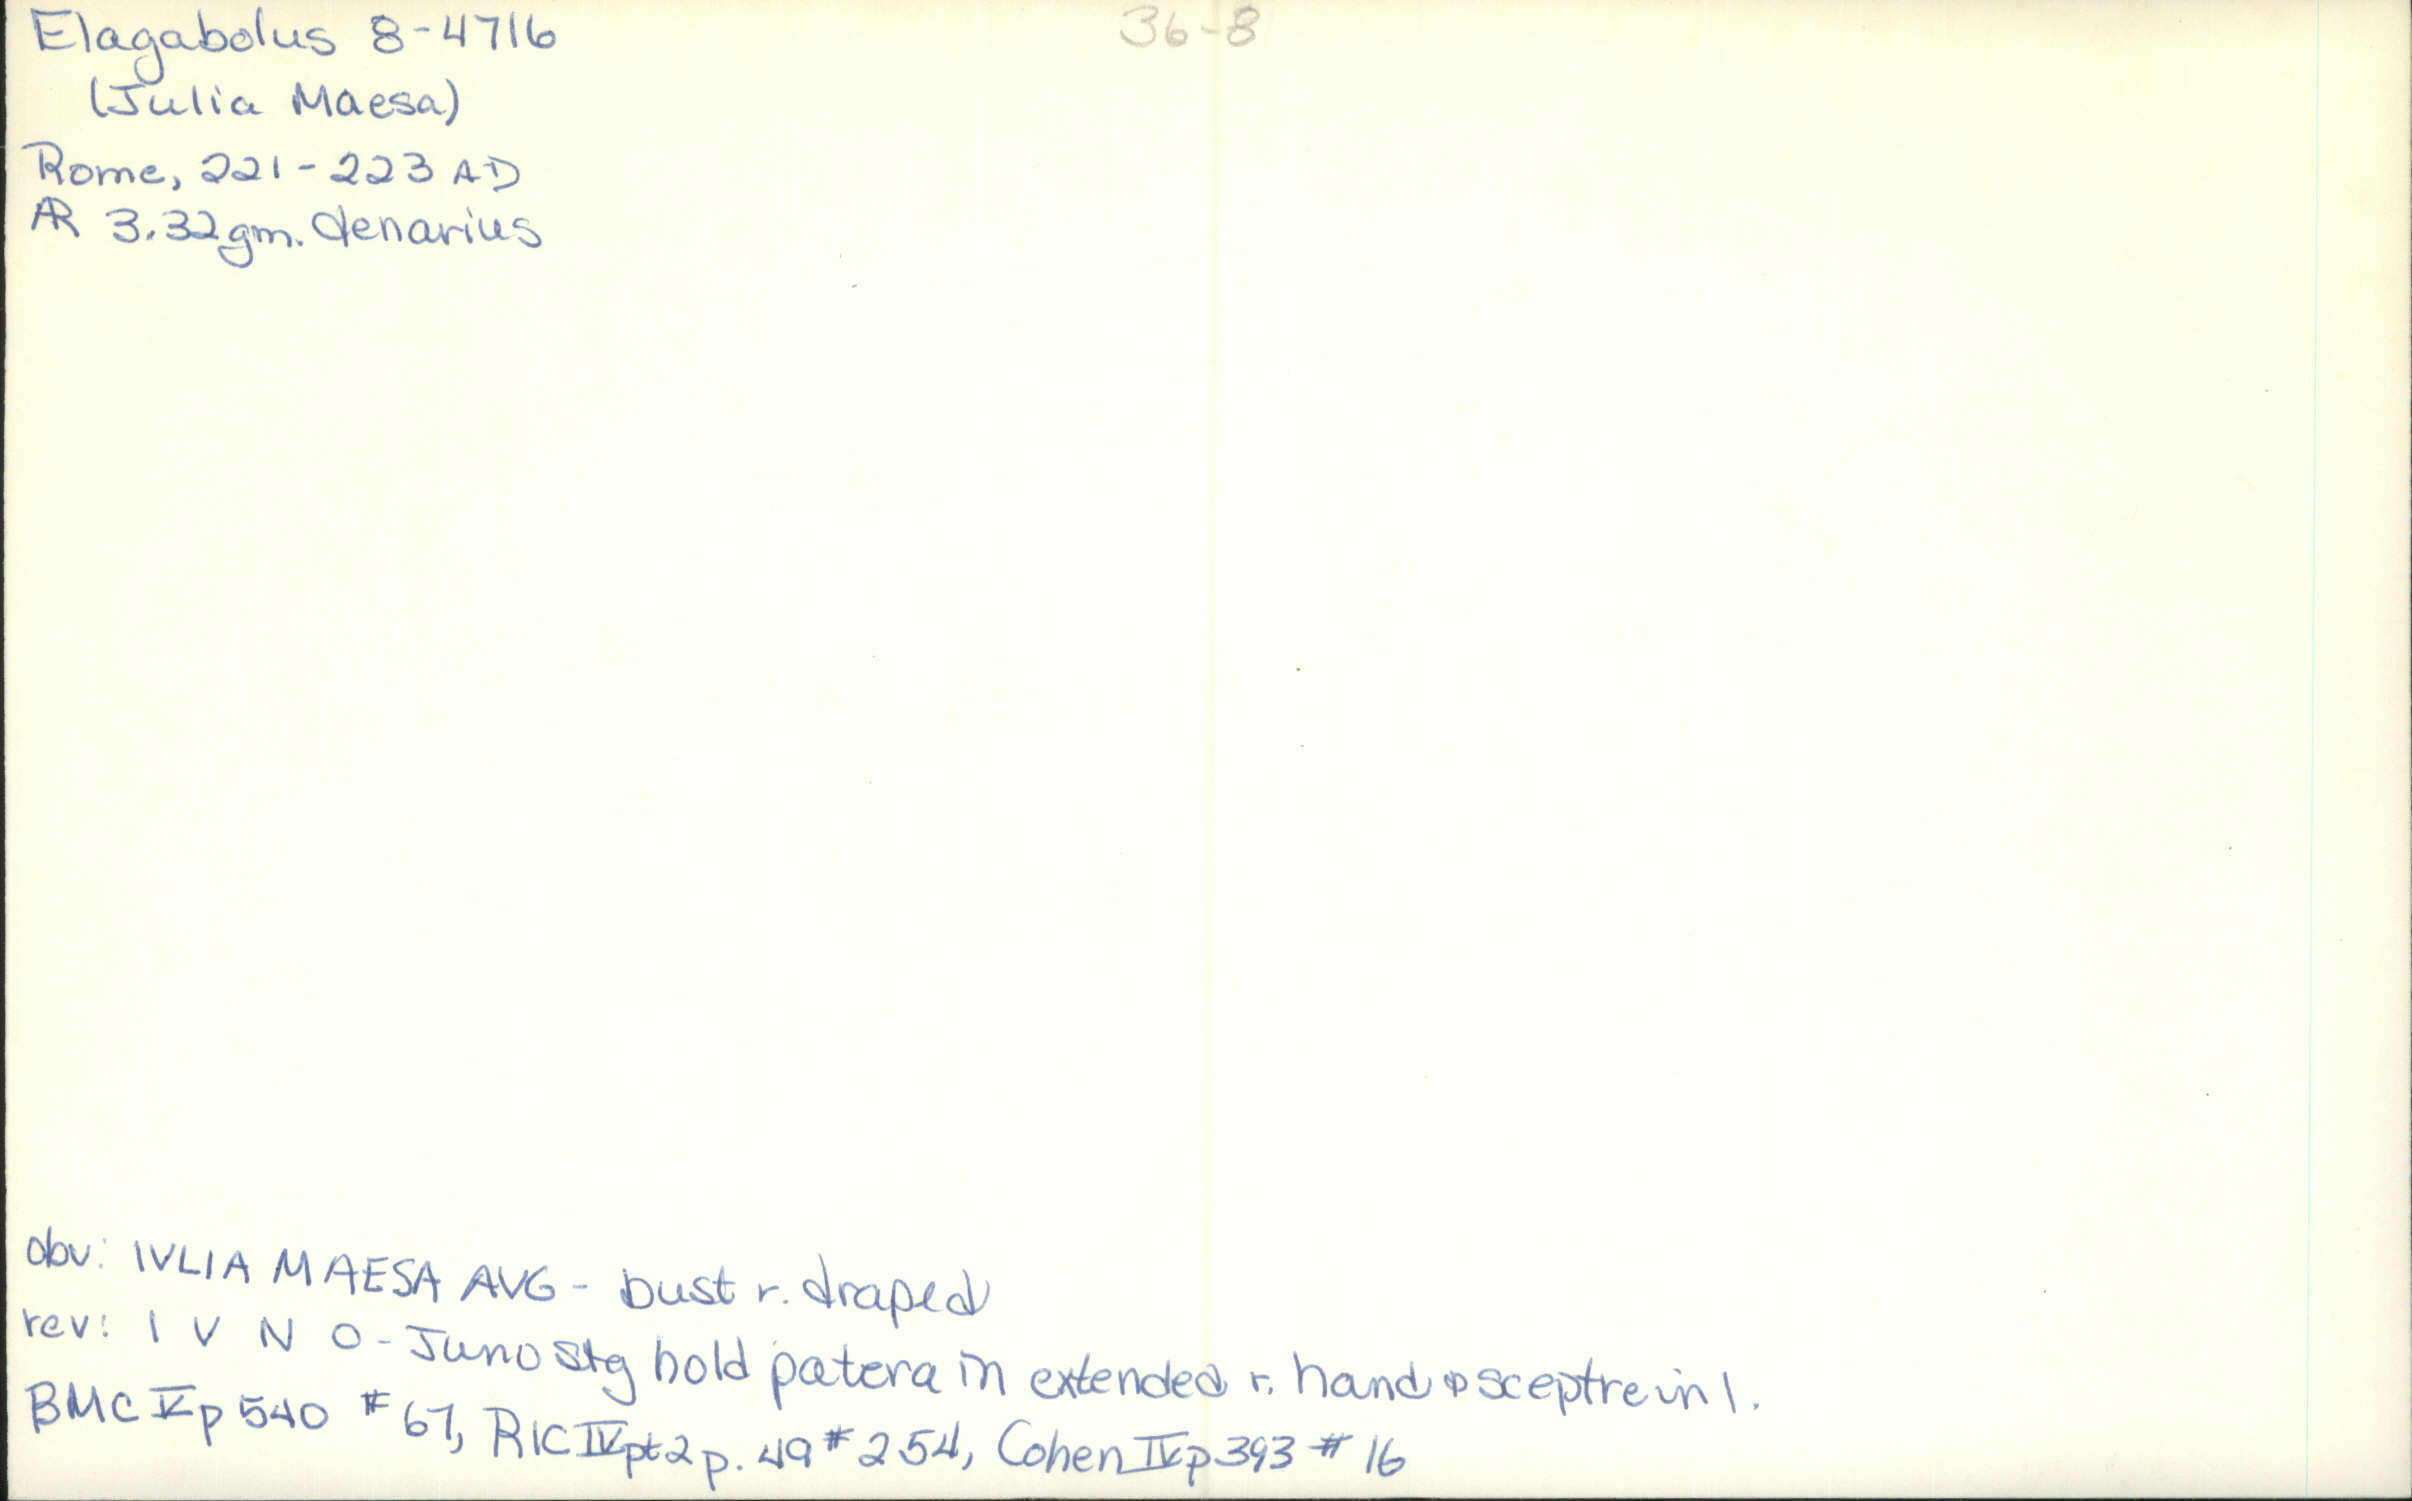 Elagabolus 8-4716
36-8
(Julia Maesa)
Rome, 221-223 AD
AR 3.32gm. denarius
obv: IVLIA MAESA AVG - bust r. draped
rev: I V N O - Juno stg hold patera in extended r. hand & sceptre in l.
BMC V p 540 # 67, RIC IV pt 2 p. 49 # 254, Cohen IV p 393 # 16